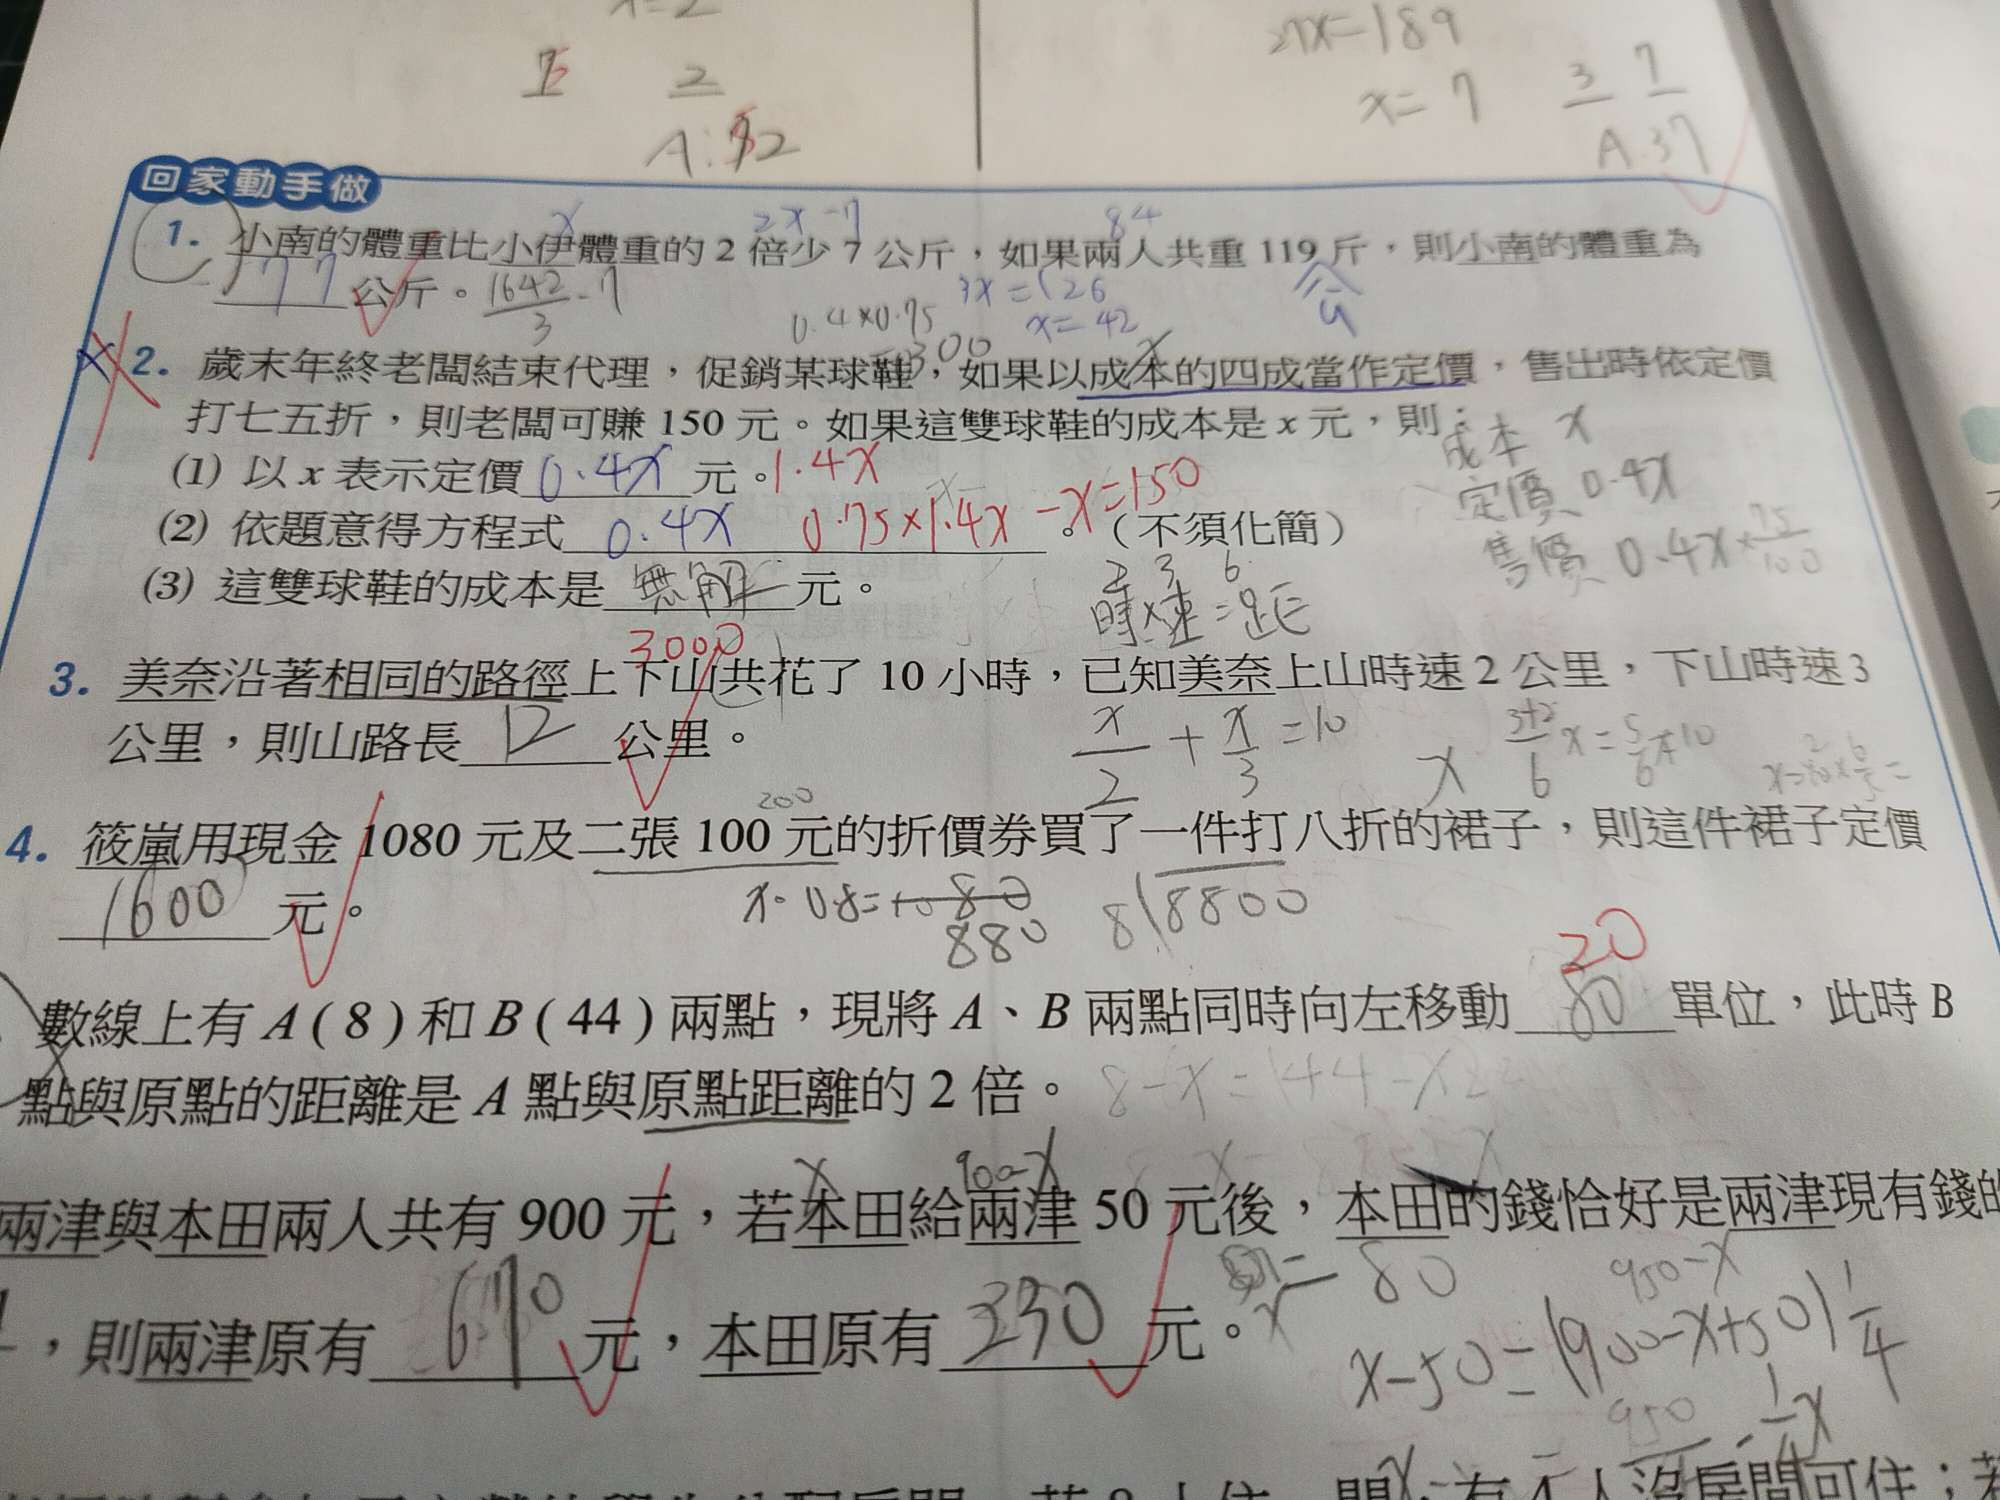 x=2
2
A:52
27x=189
x=7
3 7
A.37
回家動手做
x 2x-7 84
1. 小南的體重比小伊體重的2倍少7公斤,如果兩人共重119斤,則小南的體重為
77 公斤。
公
3x=126
x=42
0.4×0.75
300 x
2. 歲末年終老闆結束代理,促銷某球鞋,如果以成本的四成當作定價,售出時依定價
打七五折,則老闆可賺150元。如果這雙球鞋的成本是x元,則:
成本 x
(1) 以x表示定價 0.4x 元。1.4x
定價 0.4x
(2) 依題意得方程式 0.4x 0.75×1.4x-x=150 。(不須化簡)
售價 0.4x×75/100
(3) 這雙球鞋的成本是 無解 元。
3000
2 3 6
時×速=距
3. 美奈沿著相同的路徑上下山共花了10小時,已知美奈上山時速2公里,下山時速3
公里,則山路長 12 公里。
x/2+x/3=10
200
4. 筱嵐用現金1080元及二張100元的折價券買了一件打八折的裙子,則這件裙子定價
1600 元。
x·0.8=1080
880
8)8800
20
數線上有A(8)和B(44)兩點,現將A、B兩點同時向左移動 80 單位,此時B
點與原點的距離是A點與原點距離的2倍。
x 900-x
兩津與本田兩人共有900元,若本田給兩津50元後,本田的錢恰好是兩津現有錢的
,則兩津原有 670 元,本田原有 230 元。
950-x
x-50=(900-x+50)1/4